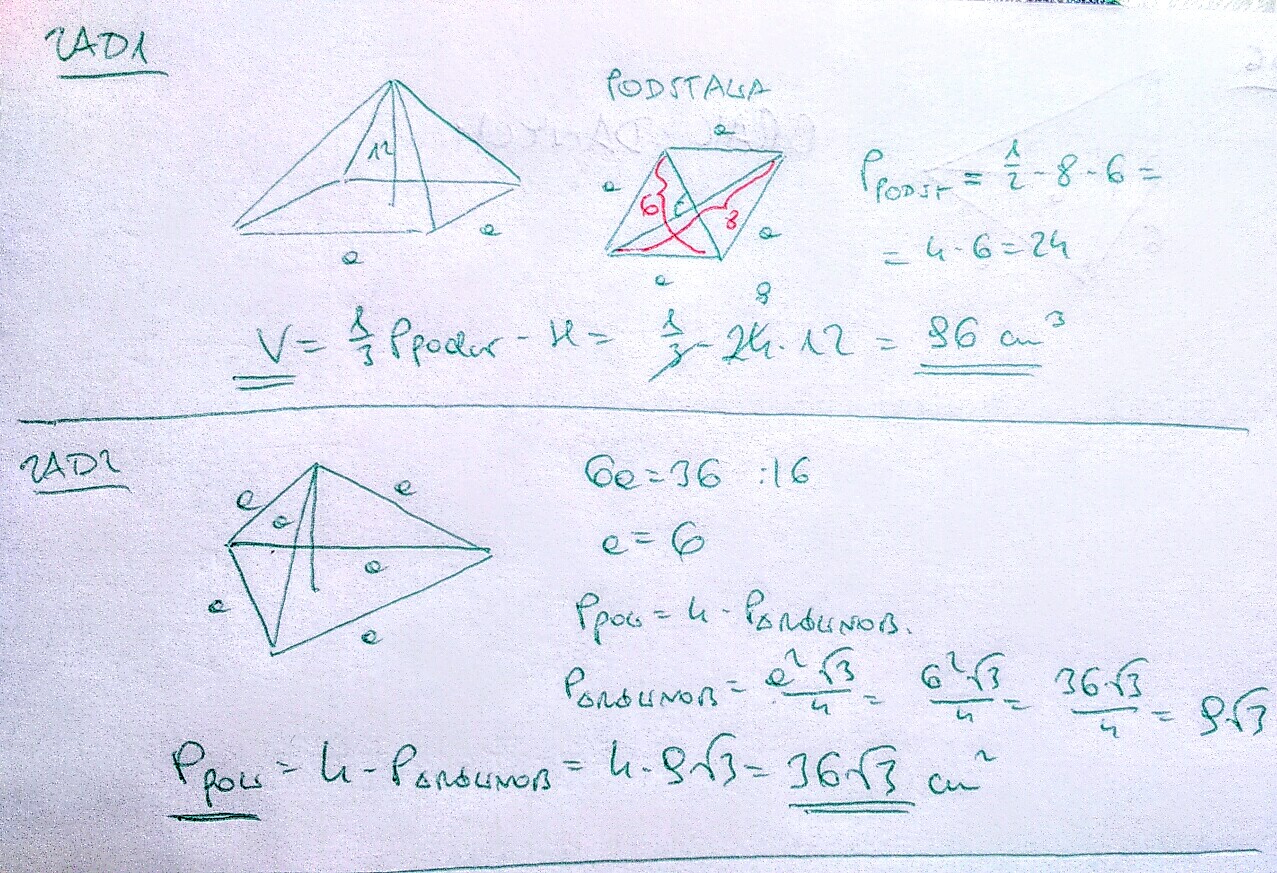 ZAD1
12
a
a
PODSTAWA
a
a
6
8
a
a
P_PODST = 1/2 · 8 · 6 =
= 4 · 6 = 24
V = 1/3 P_podst · H = 1/3 · 24 · 12 = 96 cm³
8
ZAD2
a
a
a
a
a
a
6a = 36 :|6
a = 6
P_POW = 4 · P_ΔRÓWNOB.
P_ΔRÓWNOB = a²√3/4 = 6²√3/4 = 36√3/4 = 9√3
P_POW = 4 · P_ΔRÓWNOB = 4 · 9√3 = 36√3 cm²